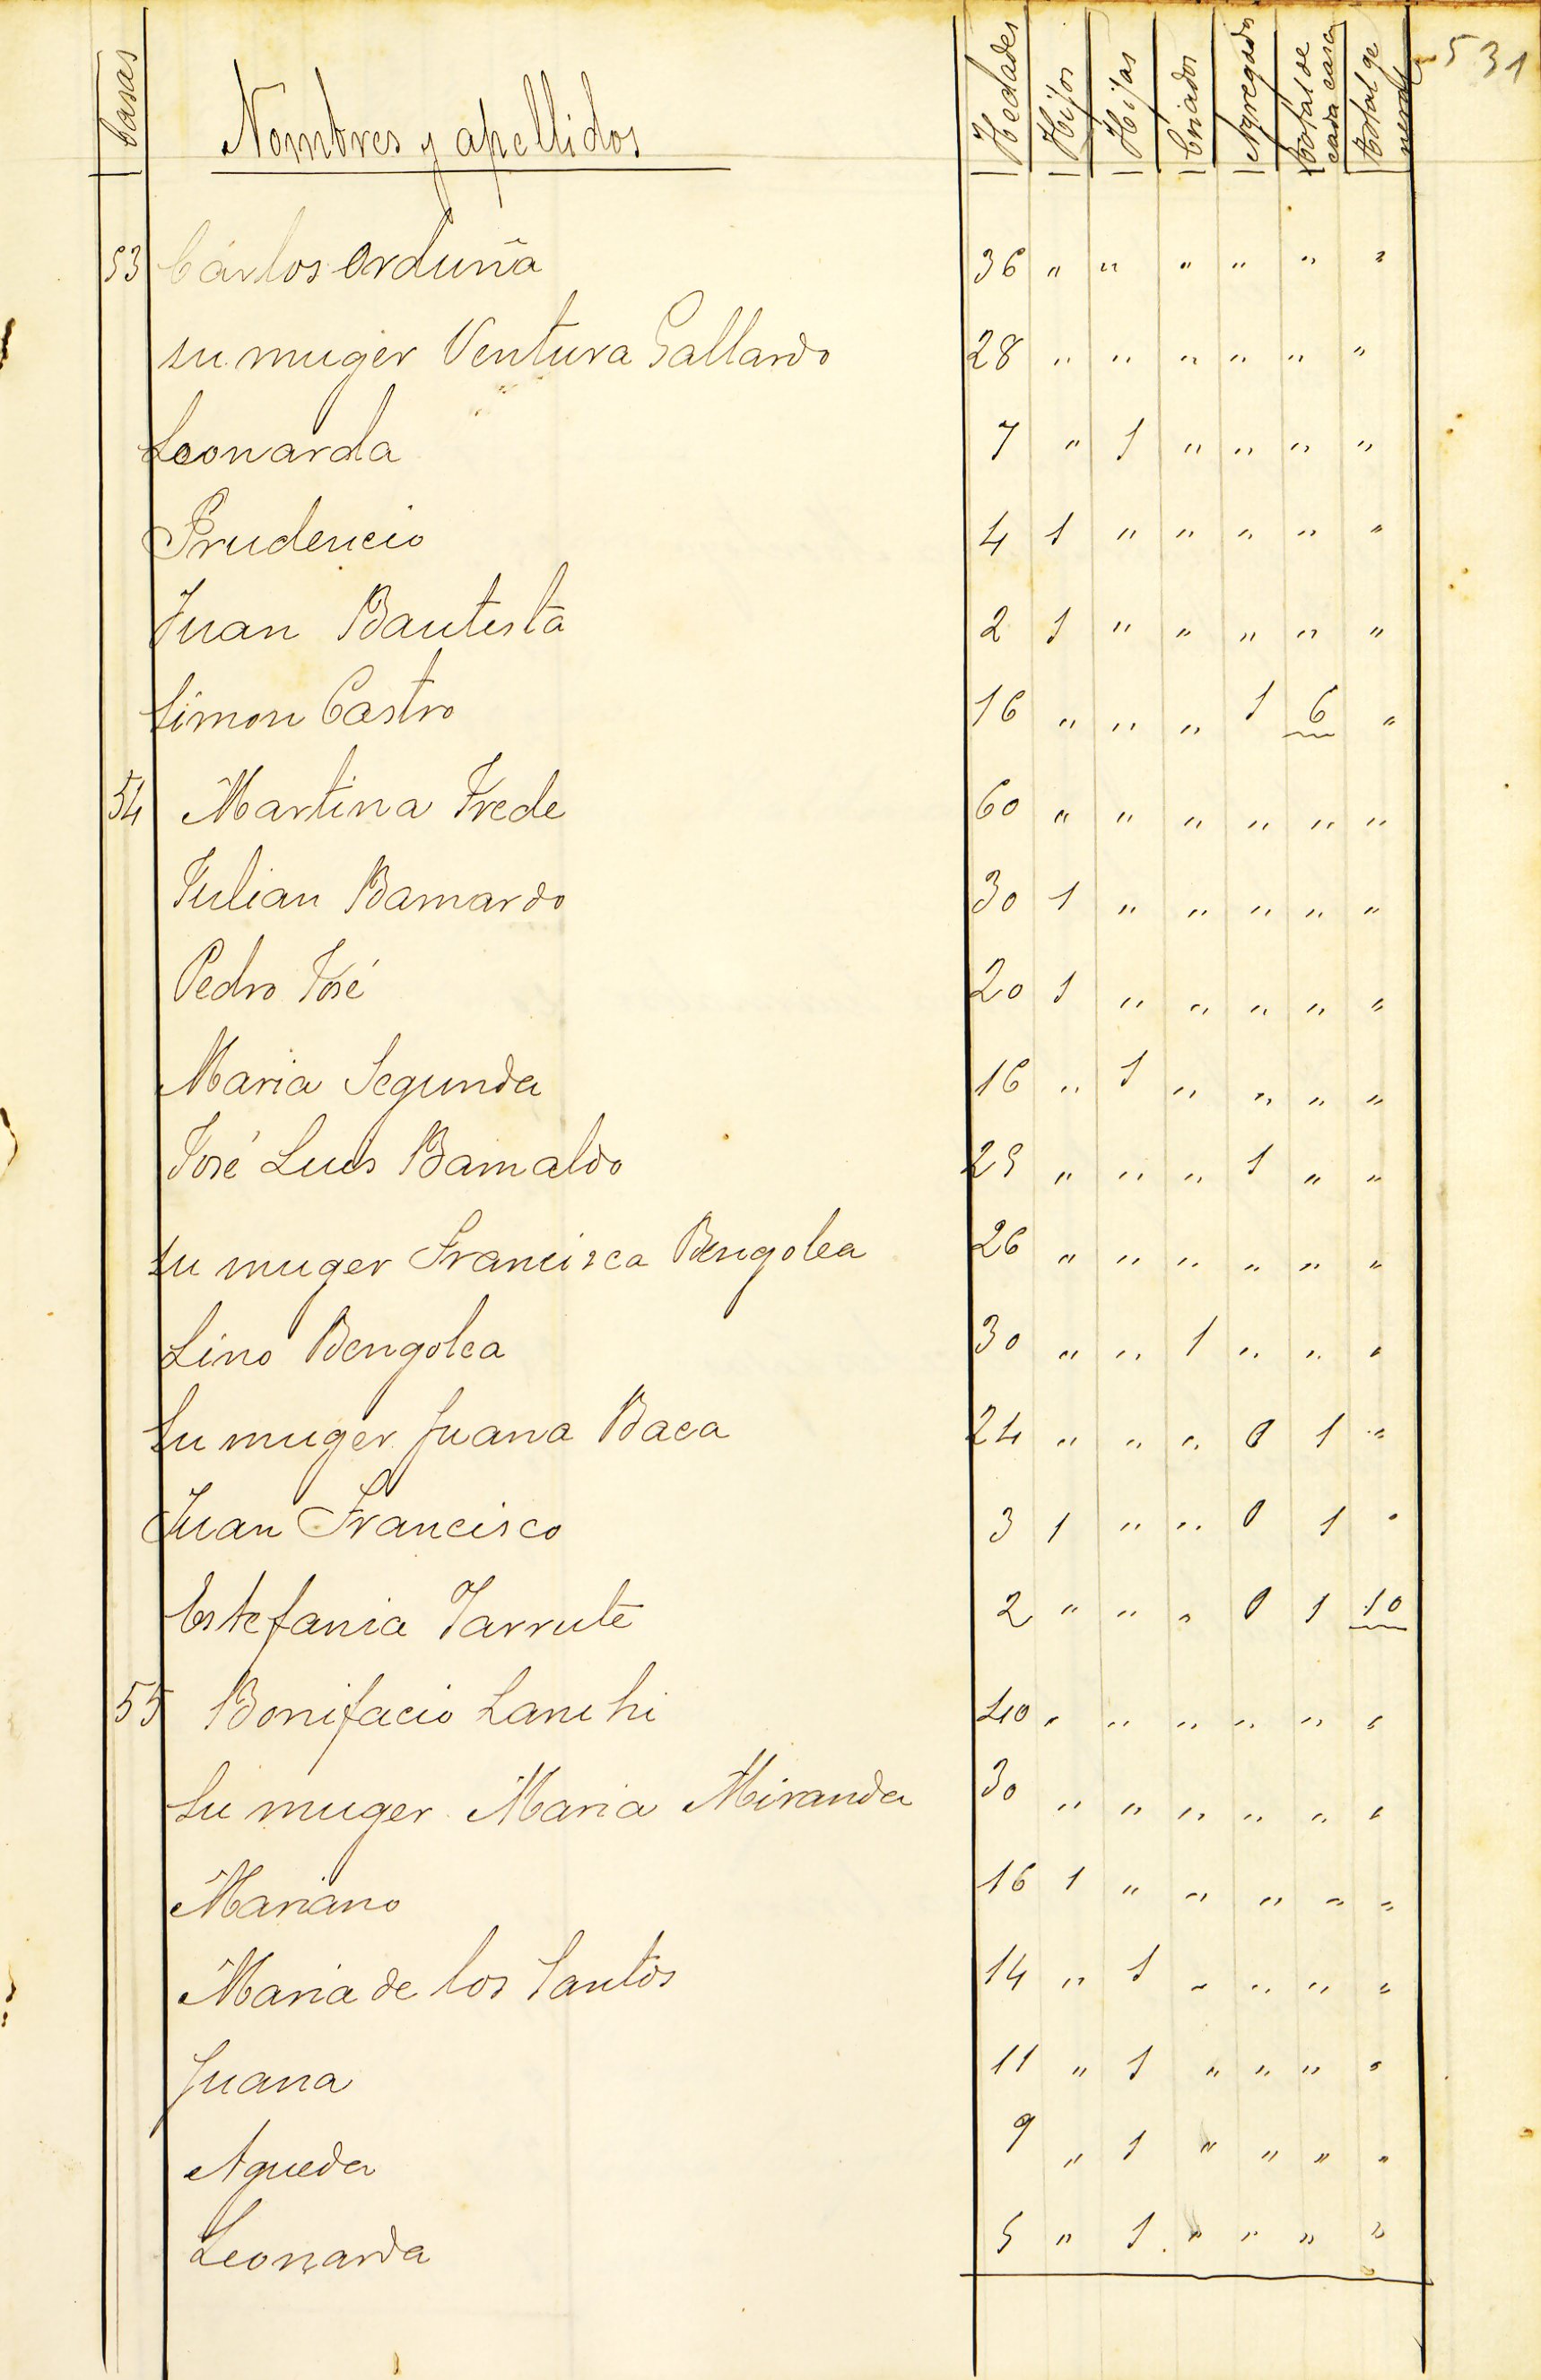 531
Casas Nombres y apellidos Hedades Hijos Hijas Criados Agregados total de cada casa total general
53 Cárlos Orduña 36 " " " " " "
su muger Ventura Gallardo 28 " " " " " "
Leonarda 7 " 1 " " " "
Prudencio 4 1 " " " " "
Juan Bautista 2 1 " " " " "
Simon Castro 16 " " " 1 6 "
54 Martina Frede 60 " " " " " "
Julian Barnardo 30 1 " " " " "
Pedro José 20 1 " " " " "
Maria Segunda 16 " 1 " " " "
José Luis Barnaldo 25 " " " 1 " "
su muger Francisca Bengolea 26 " " " " " "
Lino Bengolea 30 " " 1 " " "
Su muger Juana Baca 24 " " " 0 1 "
Juan Francisco 3 1 " " 0 1 "
Estefania Jarrute 2 " " " 0 1 10
55 Bonifacio Lanchi 40 " " " " " "
Su muger Maria Miranda 30 " " " " " "
Mariano 16 1 " " " " "
Maria de los Santos 14 " 1 " " " "
Juana 11 " 1 " " " "
Agueda 9 " 1 " " " "
Leonarda 5 " 1 " " " "